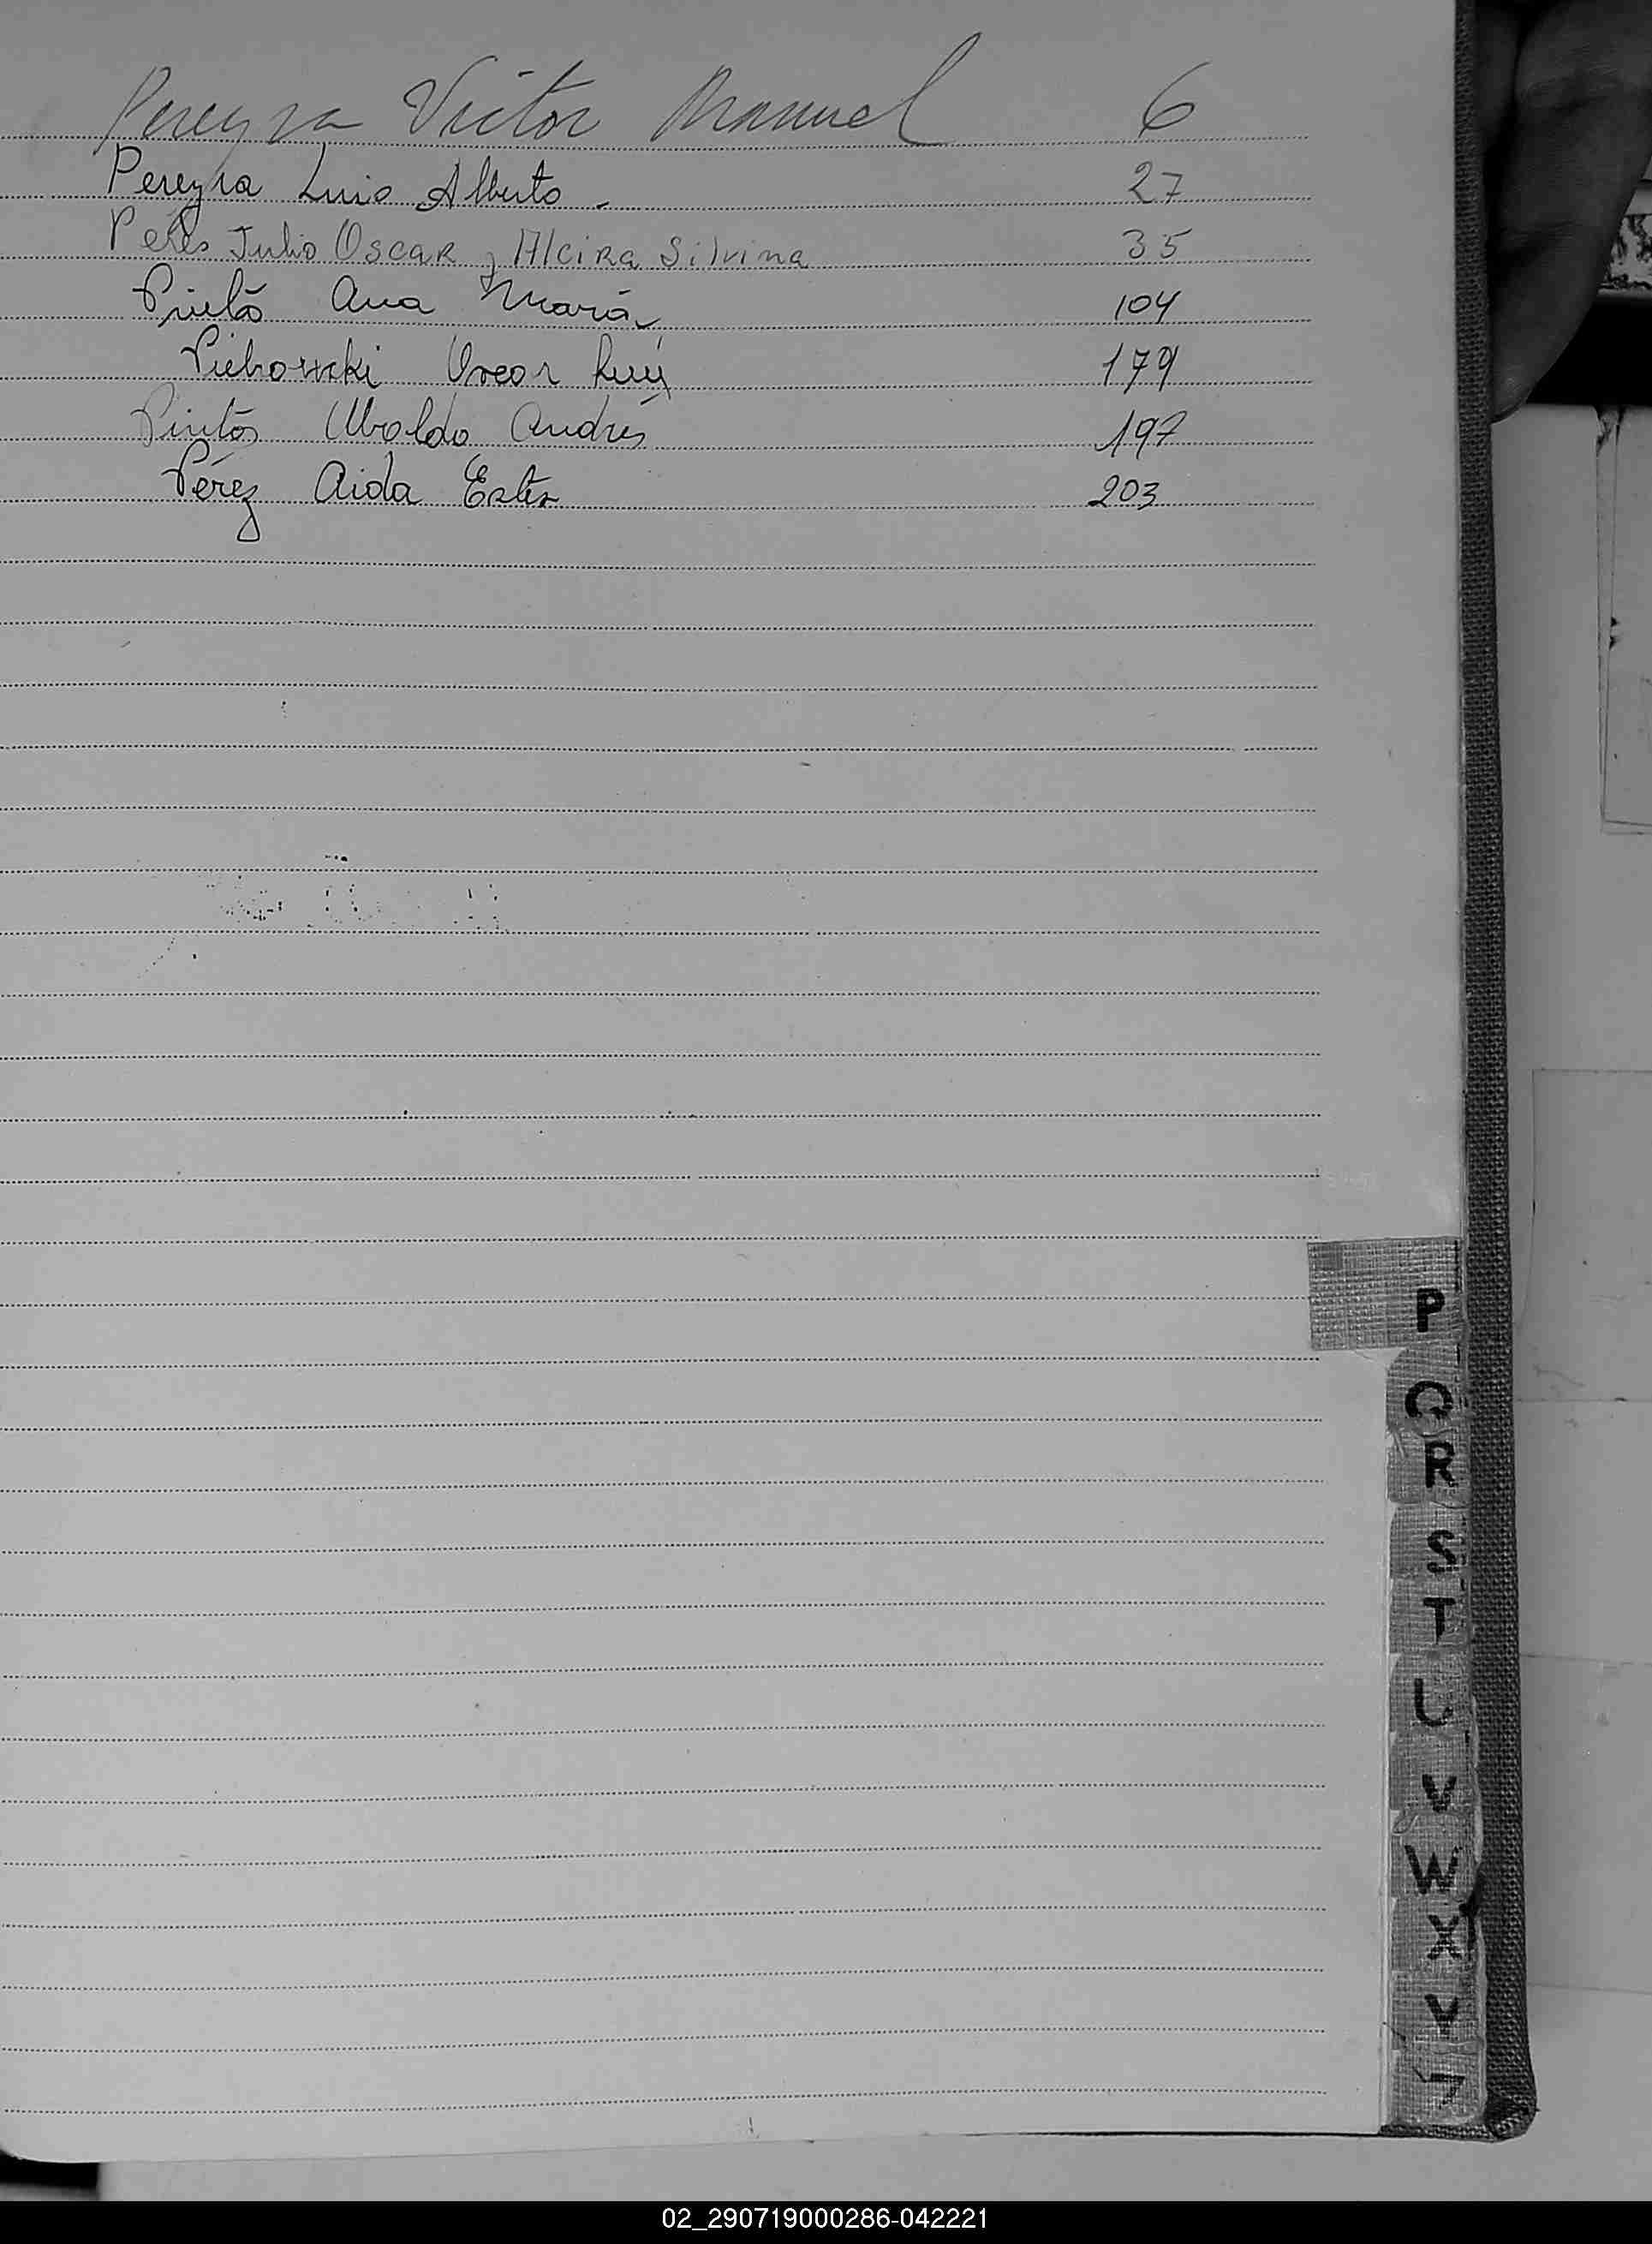 Pereyra Victor Manuel 6
Pereyra Luis Alberto. 27
Peres Julio Oscar y Alcira Silvina 35
Ana María 104
Oscar Luis 179
Pintos Ubaldo Andrés 197
Pérez Aida Ester 203
P
Q
R
S
T
U
V
W
X
Y
Z
02_290719000286-042221